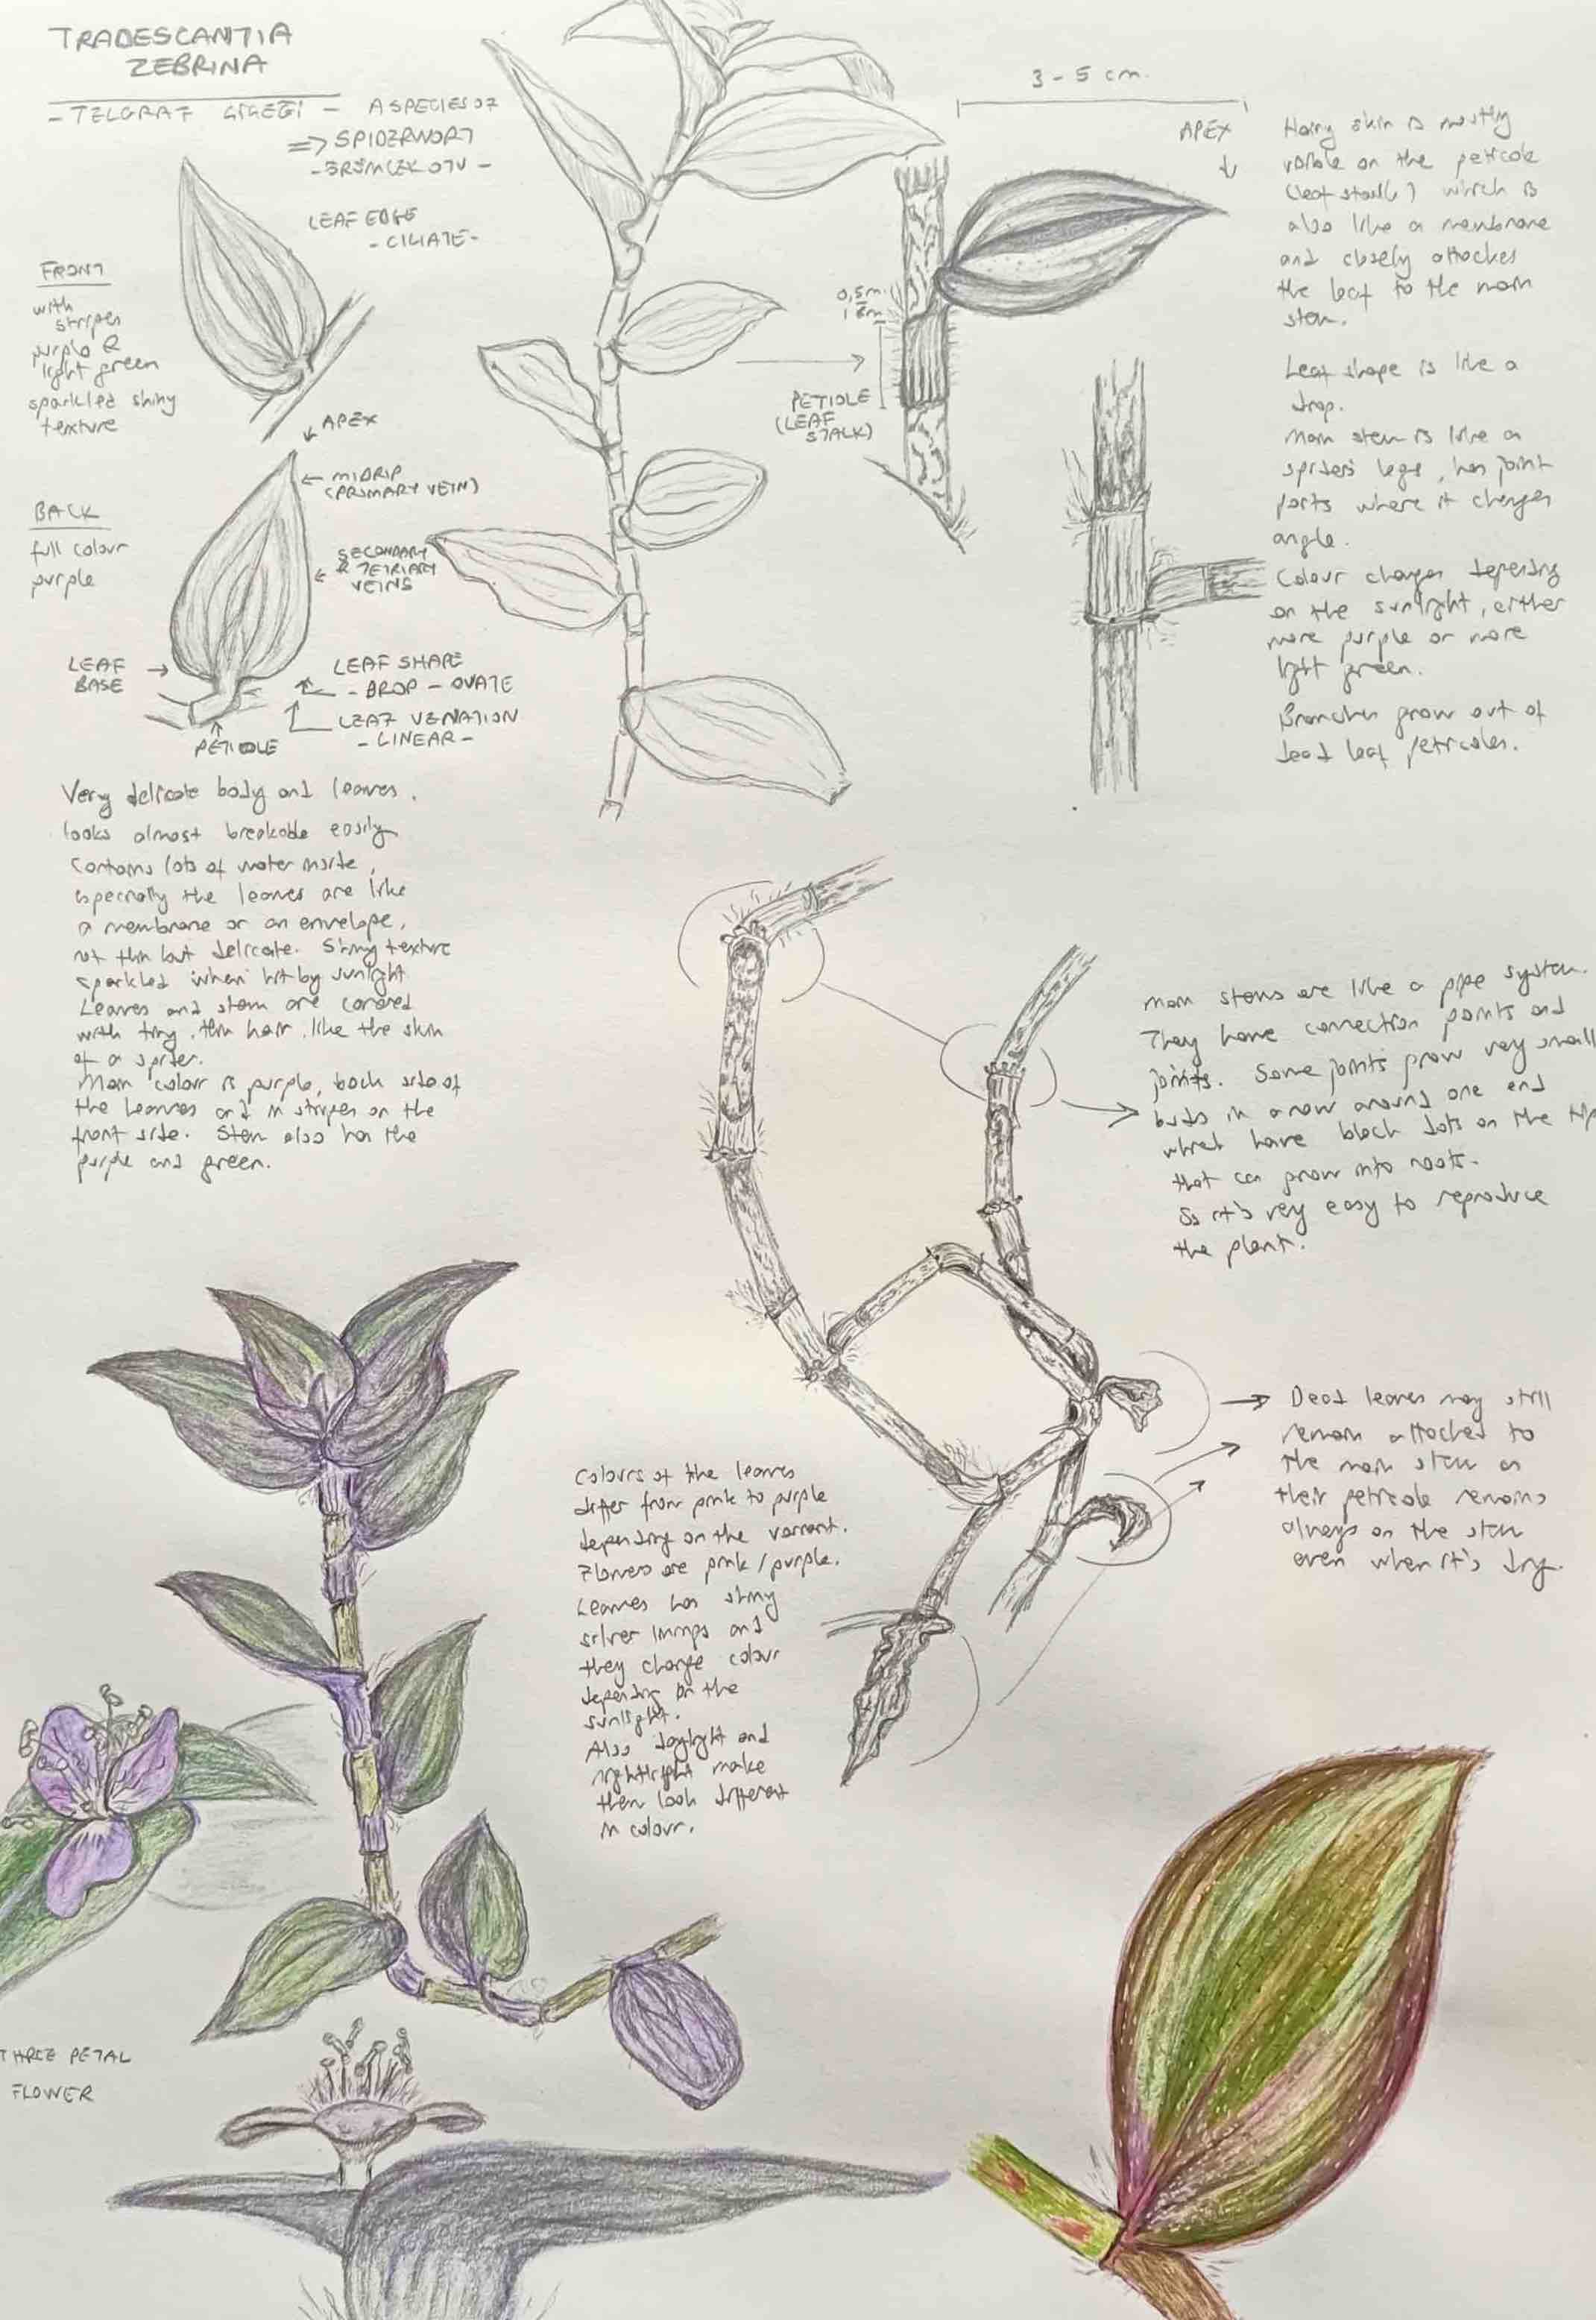 TRADESCANTIA
ZEBRINA
- TELGRAF ÇİÇEĞİ - A SPECIES OF
=> SPIDERWORT
- ÖRÜMCEK OTU -
LEAF EDGE
- CILIATE -
FRONT
with
stripes
purple &
light green
sparkled shiny
texture
APEX
MIDRIP
(PRIMARY VEIN)
BACK
full colour
purple
SECONDARY
& TETIARY
VEINS
LEAF
BASE
LEAF SHAPE
- DROP - OVATE
LEAF VENATION
- LINEAR -
PETIOLE
3-5 cm.
APEX
0,5m
1 cm
PETIOLE
(LEAF
STALK)
Hairy skin is mostly
visible on the peticole
(leaf stalk) which is
also like a membrane
and closely attaches
the leaf to the main
stem.
Leaf shape is like a
drop.
Main stem is like a
spiders legs, has joint
parts where it changes
angle.
Colour changes depending
on the sunlight, either
more purple or more
light green.
Branches grow out of
dead leaf petricoles.
Very delicate body and leaves,
looks almost breakable easily
Contains lots of water inside,
especially the leaves are like
a membrane or an envelope,
not thin but delicate. Shiny texture
sparkled when hit by sunlight
Leaves and stem are covered
with tiny, thin hair, like the skin
of a spider.
Main colour is purple, back side of
the leaves and in stripes on the
front side. Stem also has the
purple and green.
Main stems are like a pipe system.
They have connection points and
joints. Some joints grow very small
buds in a row around one end
which have black dots on the tip
that can grow into roots.
So it's very easy to reproduce
the plant.
Dead leaves may still
remain attached to
the main stem as
their petricole remains
always on the stem
even when it's dry.
Colours of the leaves
differ from pink to purple
depending on the variant.
Flowers are pink/purple.
Leaves has shiny
silver linings and
they change colour
depending on the
sunlight.
Also daylight and
nightlight make
them look different
in colour.
THREE PETAL
FLOWER